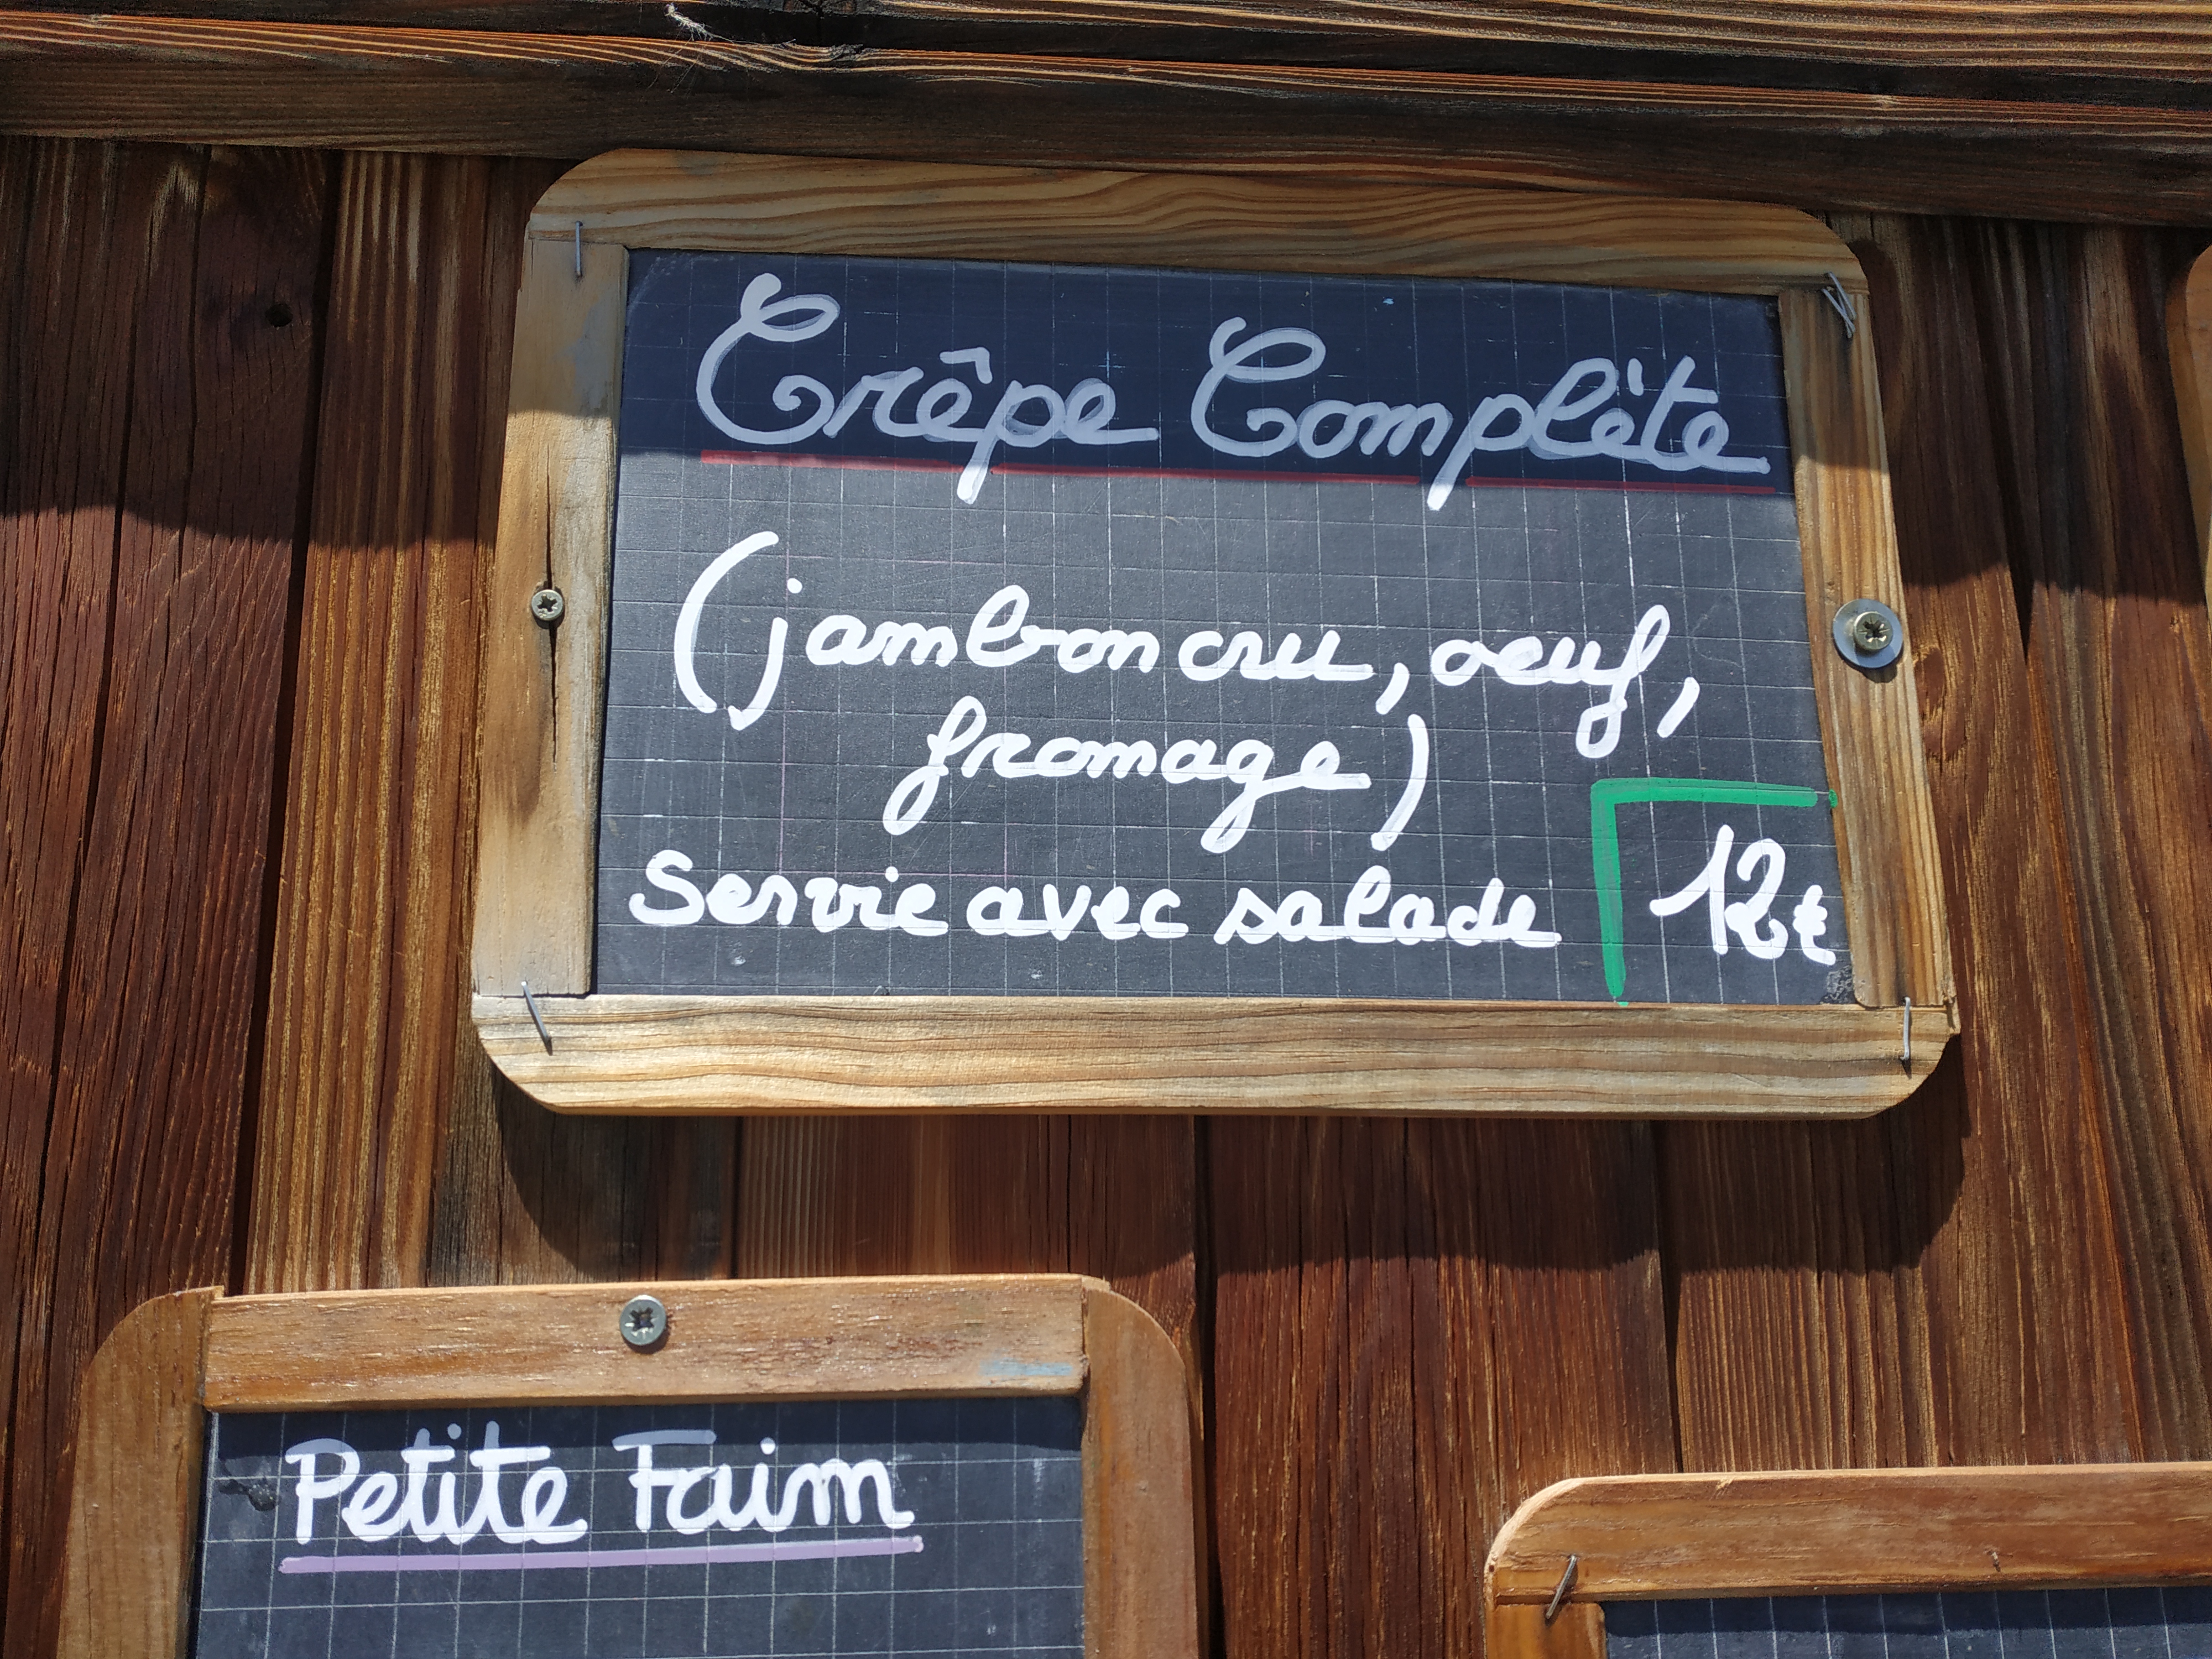 Crêpe Complète
(jambon cru, oeuf,
fromage)
Servie avec salade
12€
Petite Faim